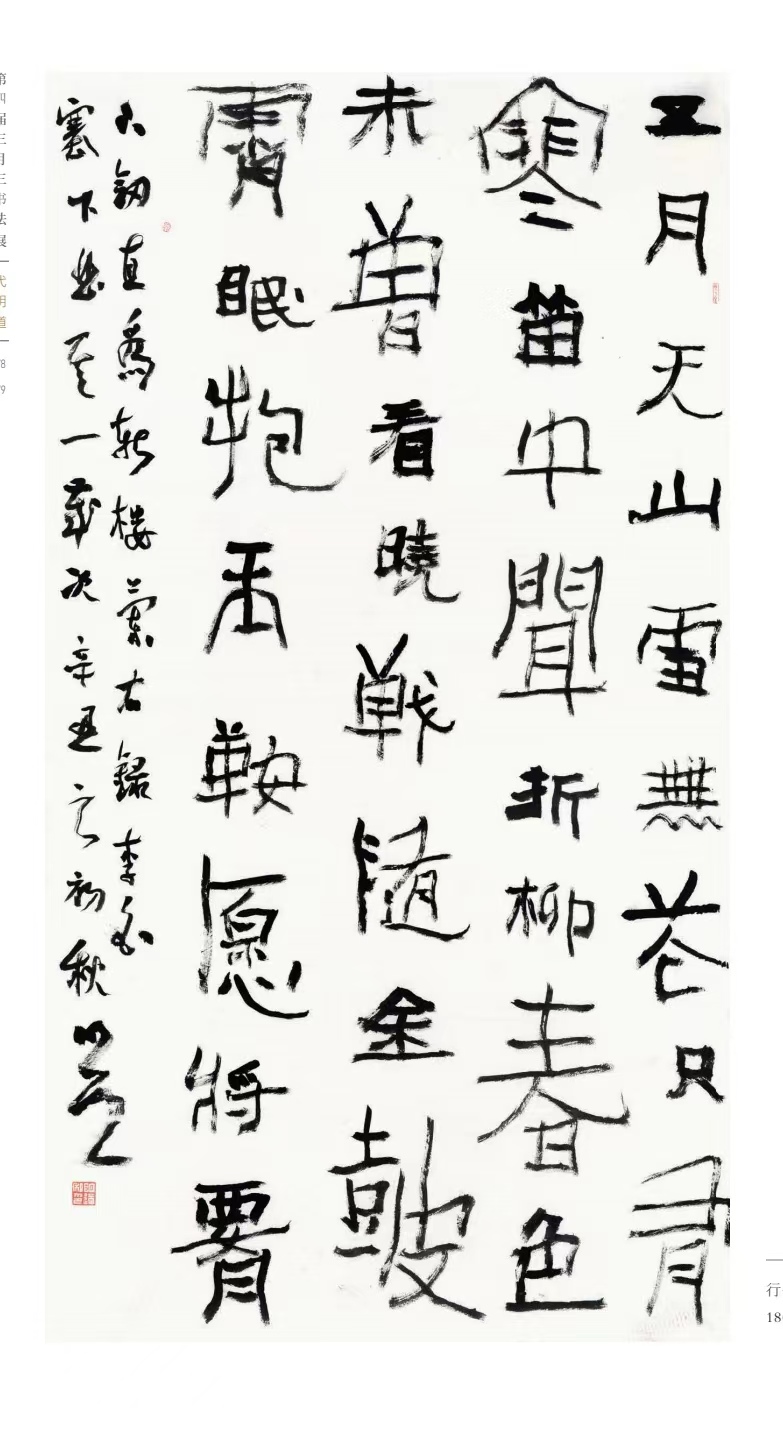 五月天山雪無花只有
寒笛中聞折柳春色
未曾看曉戰隨金鼓
霄眠抱玉鞍愿將腰
下劍直為斬樓蘭右錄李白
塞下曲其一歲次辛丑之初秋
第四届三月三书法展
代明道